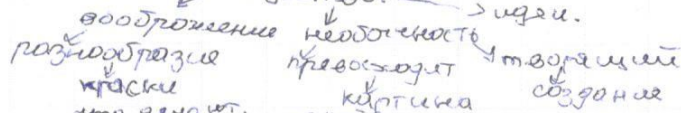 идеи.
воображение необочность
разнообразие превосходят творящий
краски картина создание